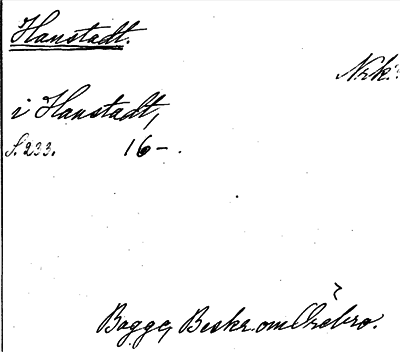 Hanstadt.
Nrk:
i Hanstadt,
S. 233. 16-.
Bagge, Beskr. om Örebro.